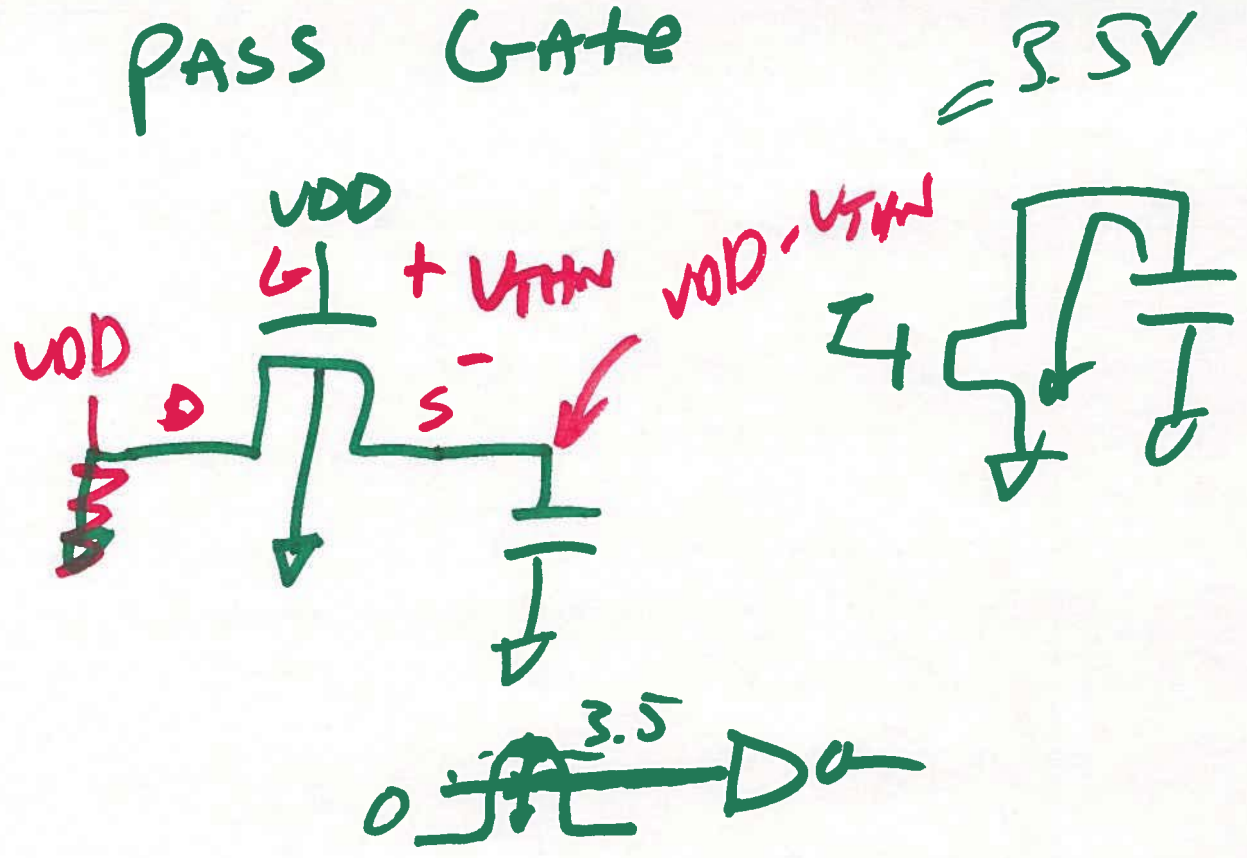 PASS GATE
= 3.5V
VDD
G + VTHN
VDD - VTHN
VDD
D
S -
3.5
0